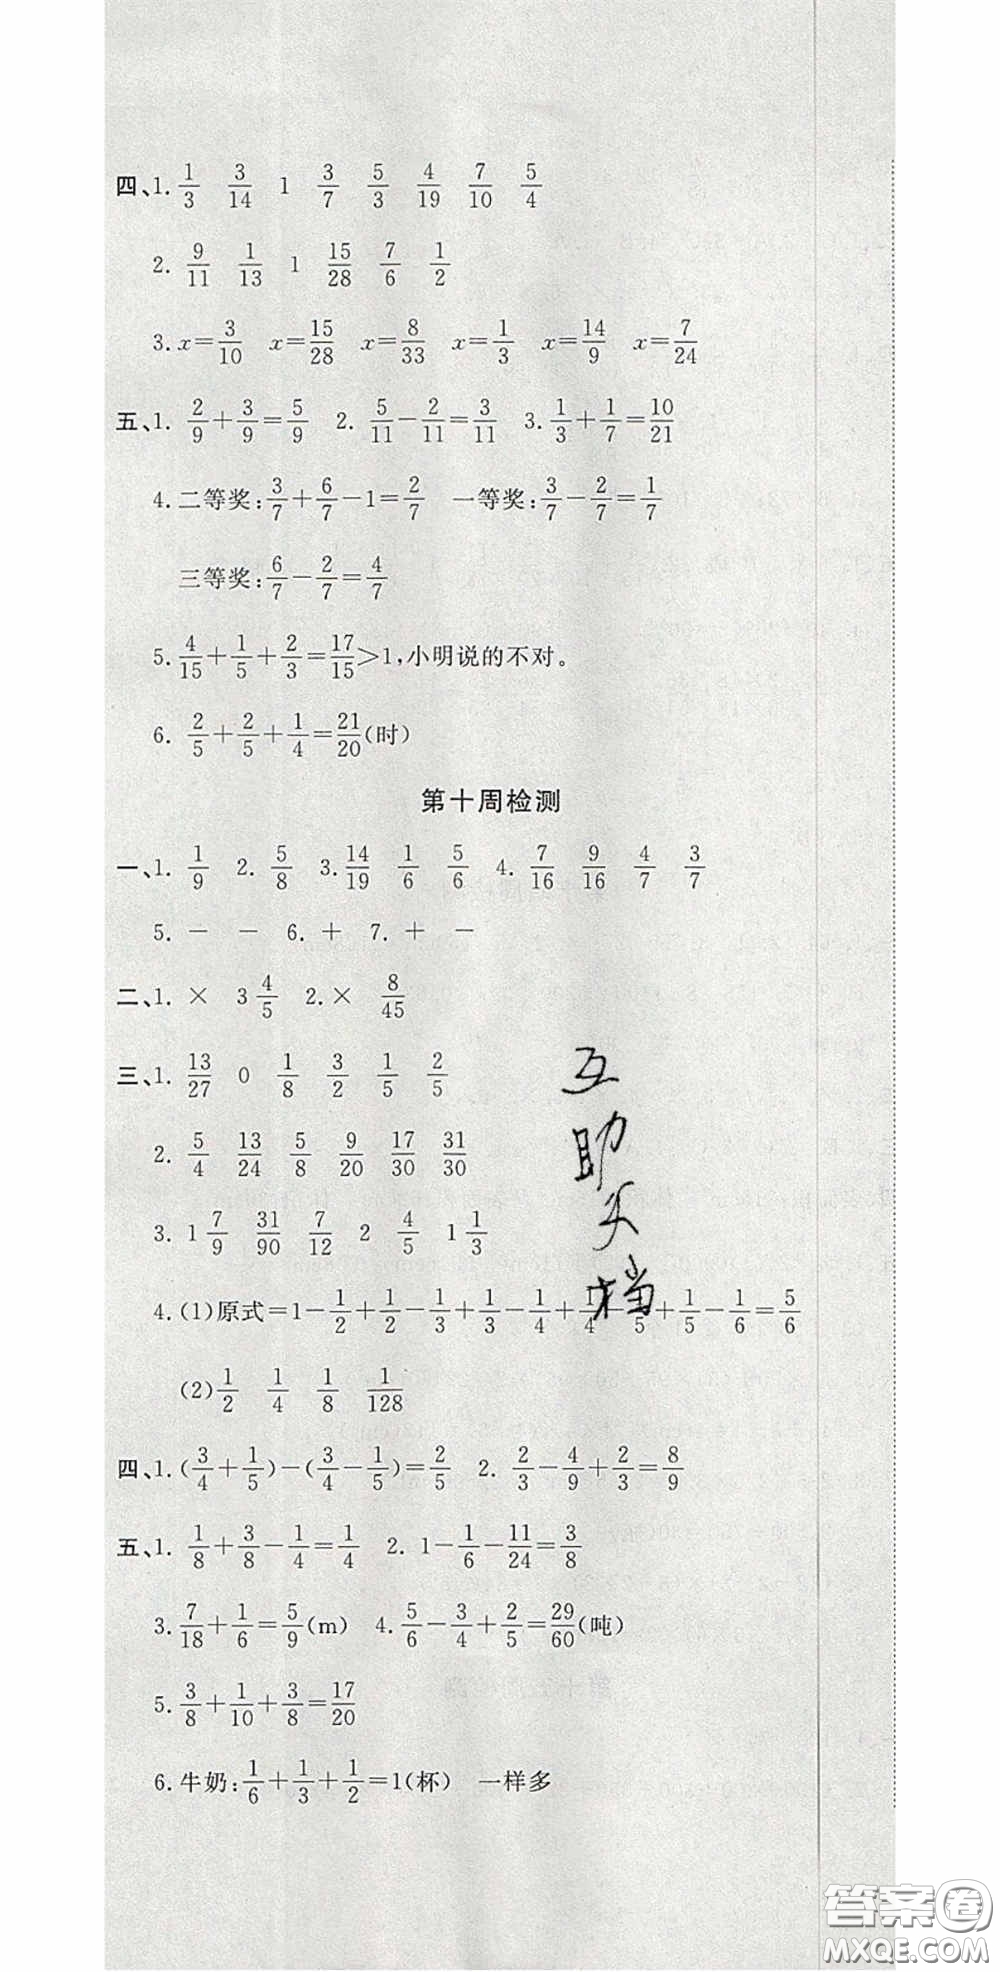 四、1. 1/3 3/14 1 3/7 5/3 4/19 7/10 5/4
2. 9/11 1/13 1 15/28 7/6 1/2
3. x=3/10 x=15/28 x=8/33 x=1/3 x=14/9 x=7/24
五、1. 2/9+3/9=5/9 2. 5/11-2/11=3/11 3. 1/3+1/7=10/21
4. 二等奖:3/7+6/7-1=2/7 一等奖:3/7-2/7=1/7
三等奖:6/7-2/7=4/7
5. 4/15+1/5+2/3=17/15>1,小明说的不对。
6. 2/5+2/5+1/4=21/20(时)
第十周检测
一、1. 1/9 2. 5/8 3. 14/19 1/6 5/6 4. 7/16 9/16 4/7 3/7
5. - - 6. + 7. + -
二、1. × 3 4/5 2. × 8/45
三、1. 13/27 0 1/8 3/2 1/5 2/5
2. 5/4 13/24 5/8 9/20 17/30 31/30
3. 1 7/9 31/90 7/12 2 4/5 1 1/3
4. (1)原式=1-1/2+1/2-1/3+1/3-1/4+1/4 1/5+1/5-1/6=5/6
(2)1/2 1/4 1/8 1/128
四、1. (3/4+1/5)-(3/4-1/5)=2/5 2. 2/3-4/9+2/3=8/9
五、1. 1/8+3/8-1/4=1/4 2. 1-1/6-11/24=3/8
3. 7/18+1/6=5/9(m) 4. 5/6-3/4+2/5=29/60(吨)
5. 3/8+1/10+3/8=17/20
6. 牛奶:1/6+1/3+1/2=1(杯) 一样多
互
助
文
档
答案圈
MXQE.COM